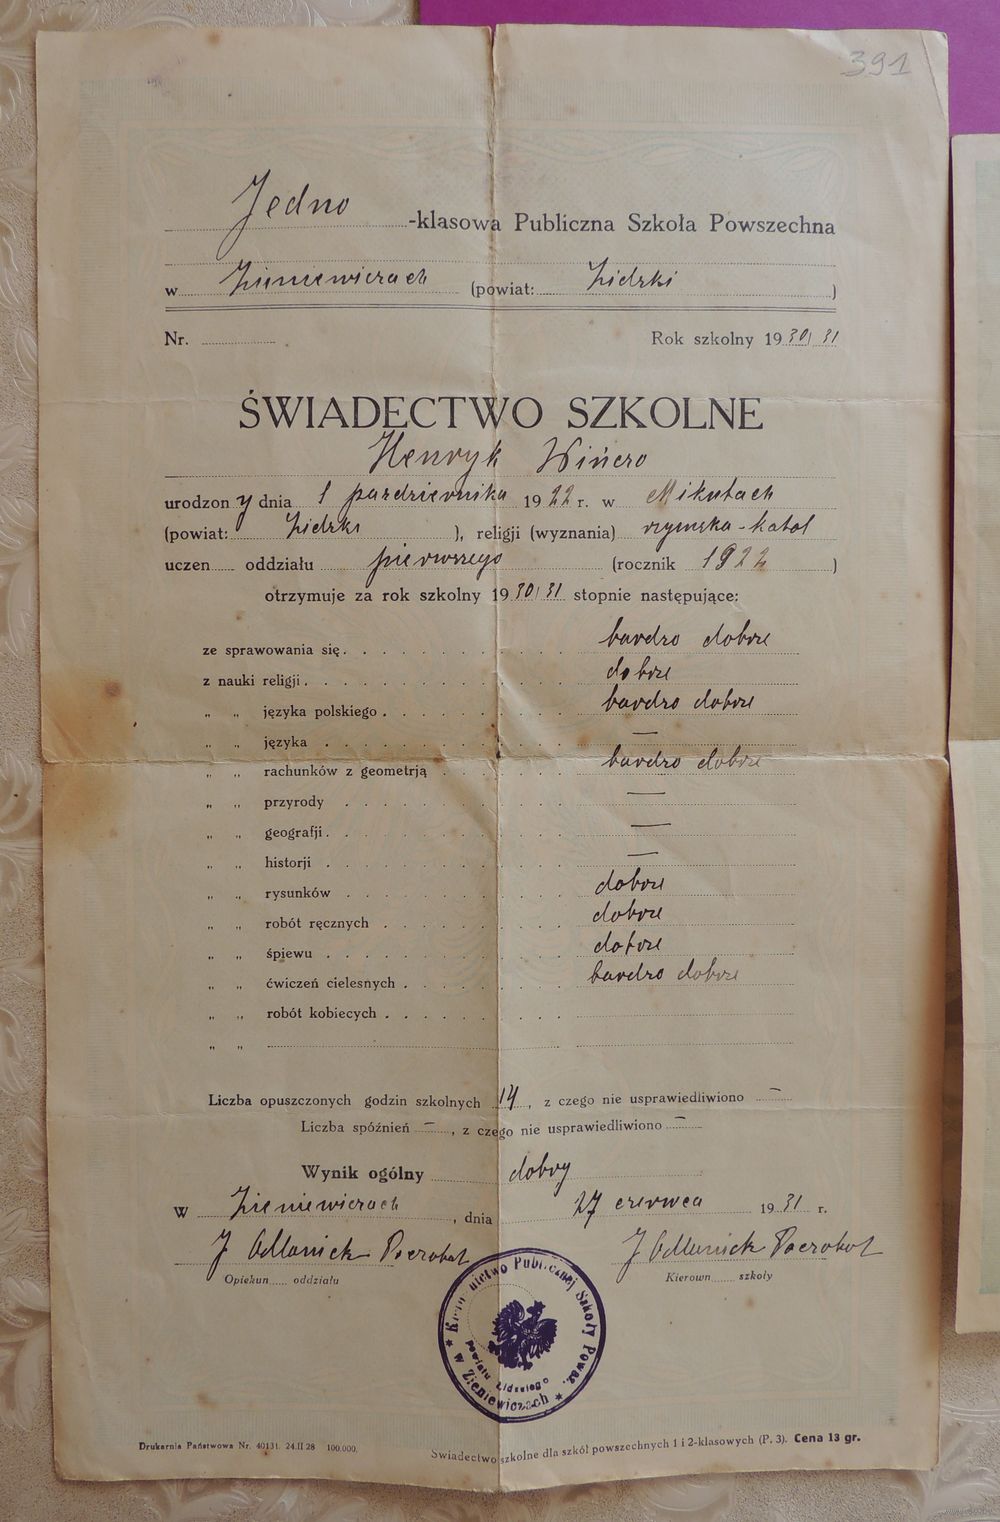 391
Jedno -klasowa Publiczna Szkoła Powszechna
w Zieniewiczach (powiat: Lidzki )
Nr. Rok szkolny 1930/31
ŚWIADECTWO SZKOLNE
Henryk
urodzony dnia 1 pazdziernika 1922 r. w Mikutach
(powiat: Lidzki ), religji (wyznania) rzymska-katol
uczen oddziału pierwszego (rocznik 1922 )
otrzymuje za rok szkolny 1930/31 stopnie następujące:
ze sprawowania się. bardzo dobrze
z nauki religji. dobrze
" " języka polskiego. bardzo dobrze
" " języka —
" " rachunków z geometrją bardzo dobrze
" " przyrody —
" " geografji. —
" " historji —
" " rysunków dobrze
" " robót ręcznych dobrze
" " śpiewu dobrze
" " ćwiczeń cielesnych bardzo dobrze
" " robót kobiecych
" "
Liczba opuszczonych godzin szkolnych 14, z czego nie usprawiedliwiono —
Liczba spóźnień —, z czego nie usprawiedliwiono —
Wynik ogólny dobry
W Zieniewiczach, dnia 27 czerwca 1931 r.
J Odlanick Poczobut J Odlanick Poczobut
Opiekun oddziału Kierown szkoły
Kierownictwo Publicznej Szkoły Powsz.
w Zieniewiczach
Powiatu Lidzkiego
Drukarnia Państwowa Nr. 40131. 24.II 28 100.000.
Świadectwo szkolne dla szkół powszechnych 1 i 2-klasowych (P. 3). Cena 13 gr.